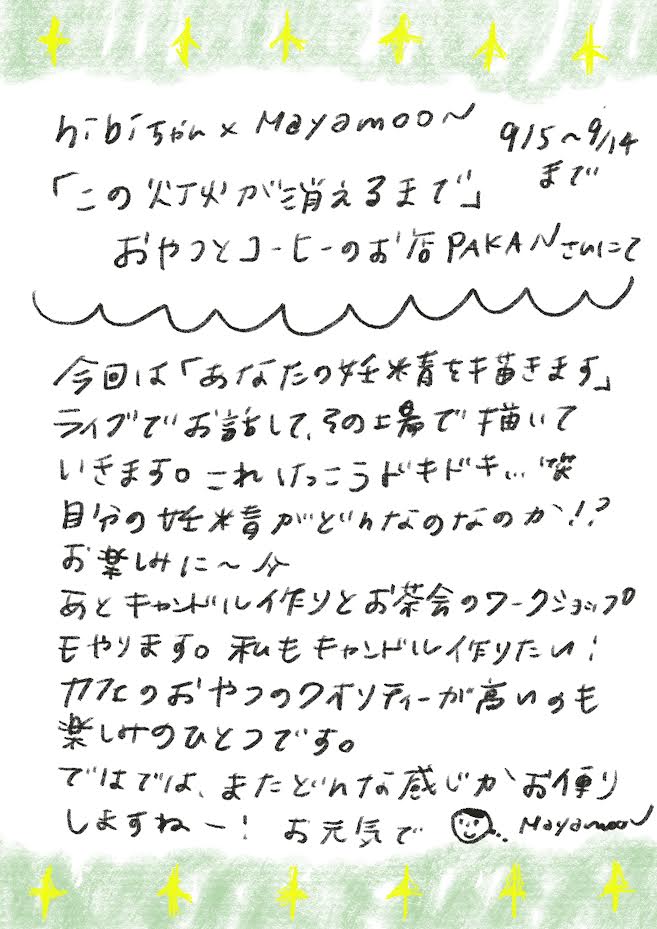 hibiちゃん×Mayamoon 9/5〜9/14
まで
「この灯火が消えるまで」
おやつとコーヒーのお店PAKANさんにて
今回は「あなたの妖精を描きます」
ライブでお話して、その場で描いて
いきます。これけっこうドキドキ... 笑
自分の妖精がどんなのなのか!?
お楽しみに〜
あとキャンドル作りとお茶会のワークショップ
もやります。私もキャンドル作りたい!
カフェのおやつのクオリティーが高いのも
楽しみのひとつです。
ではでは、またどんな感じかお便り
しますねー! お元気で Mayamoon